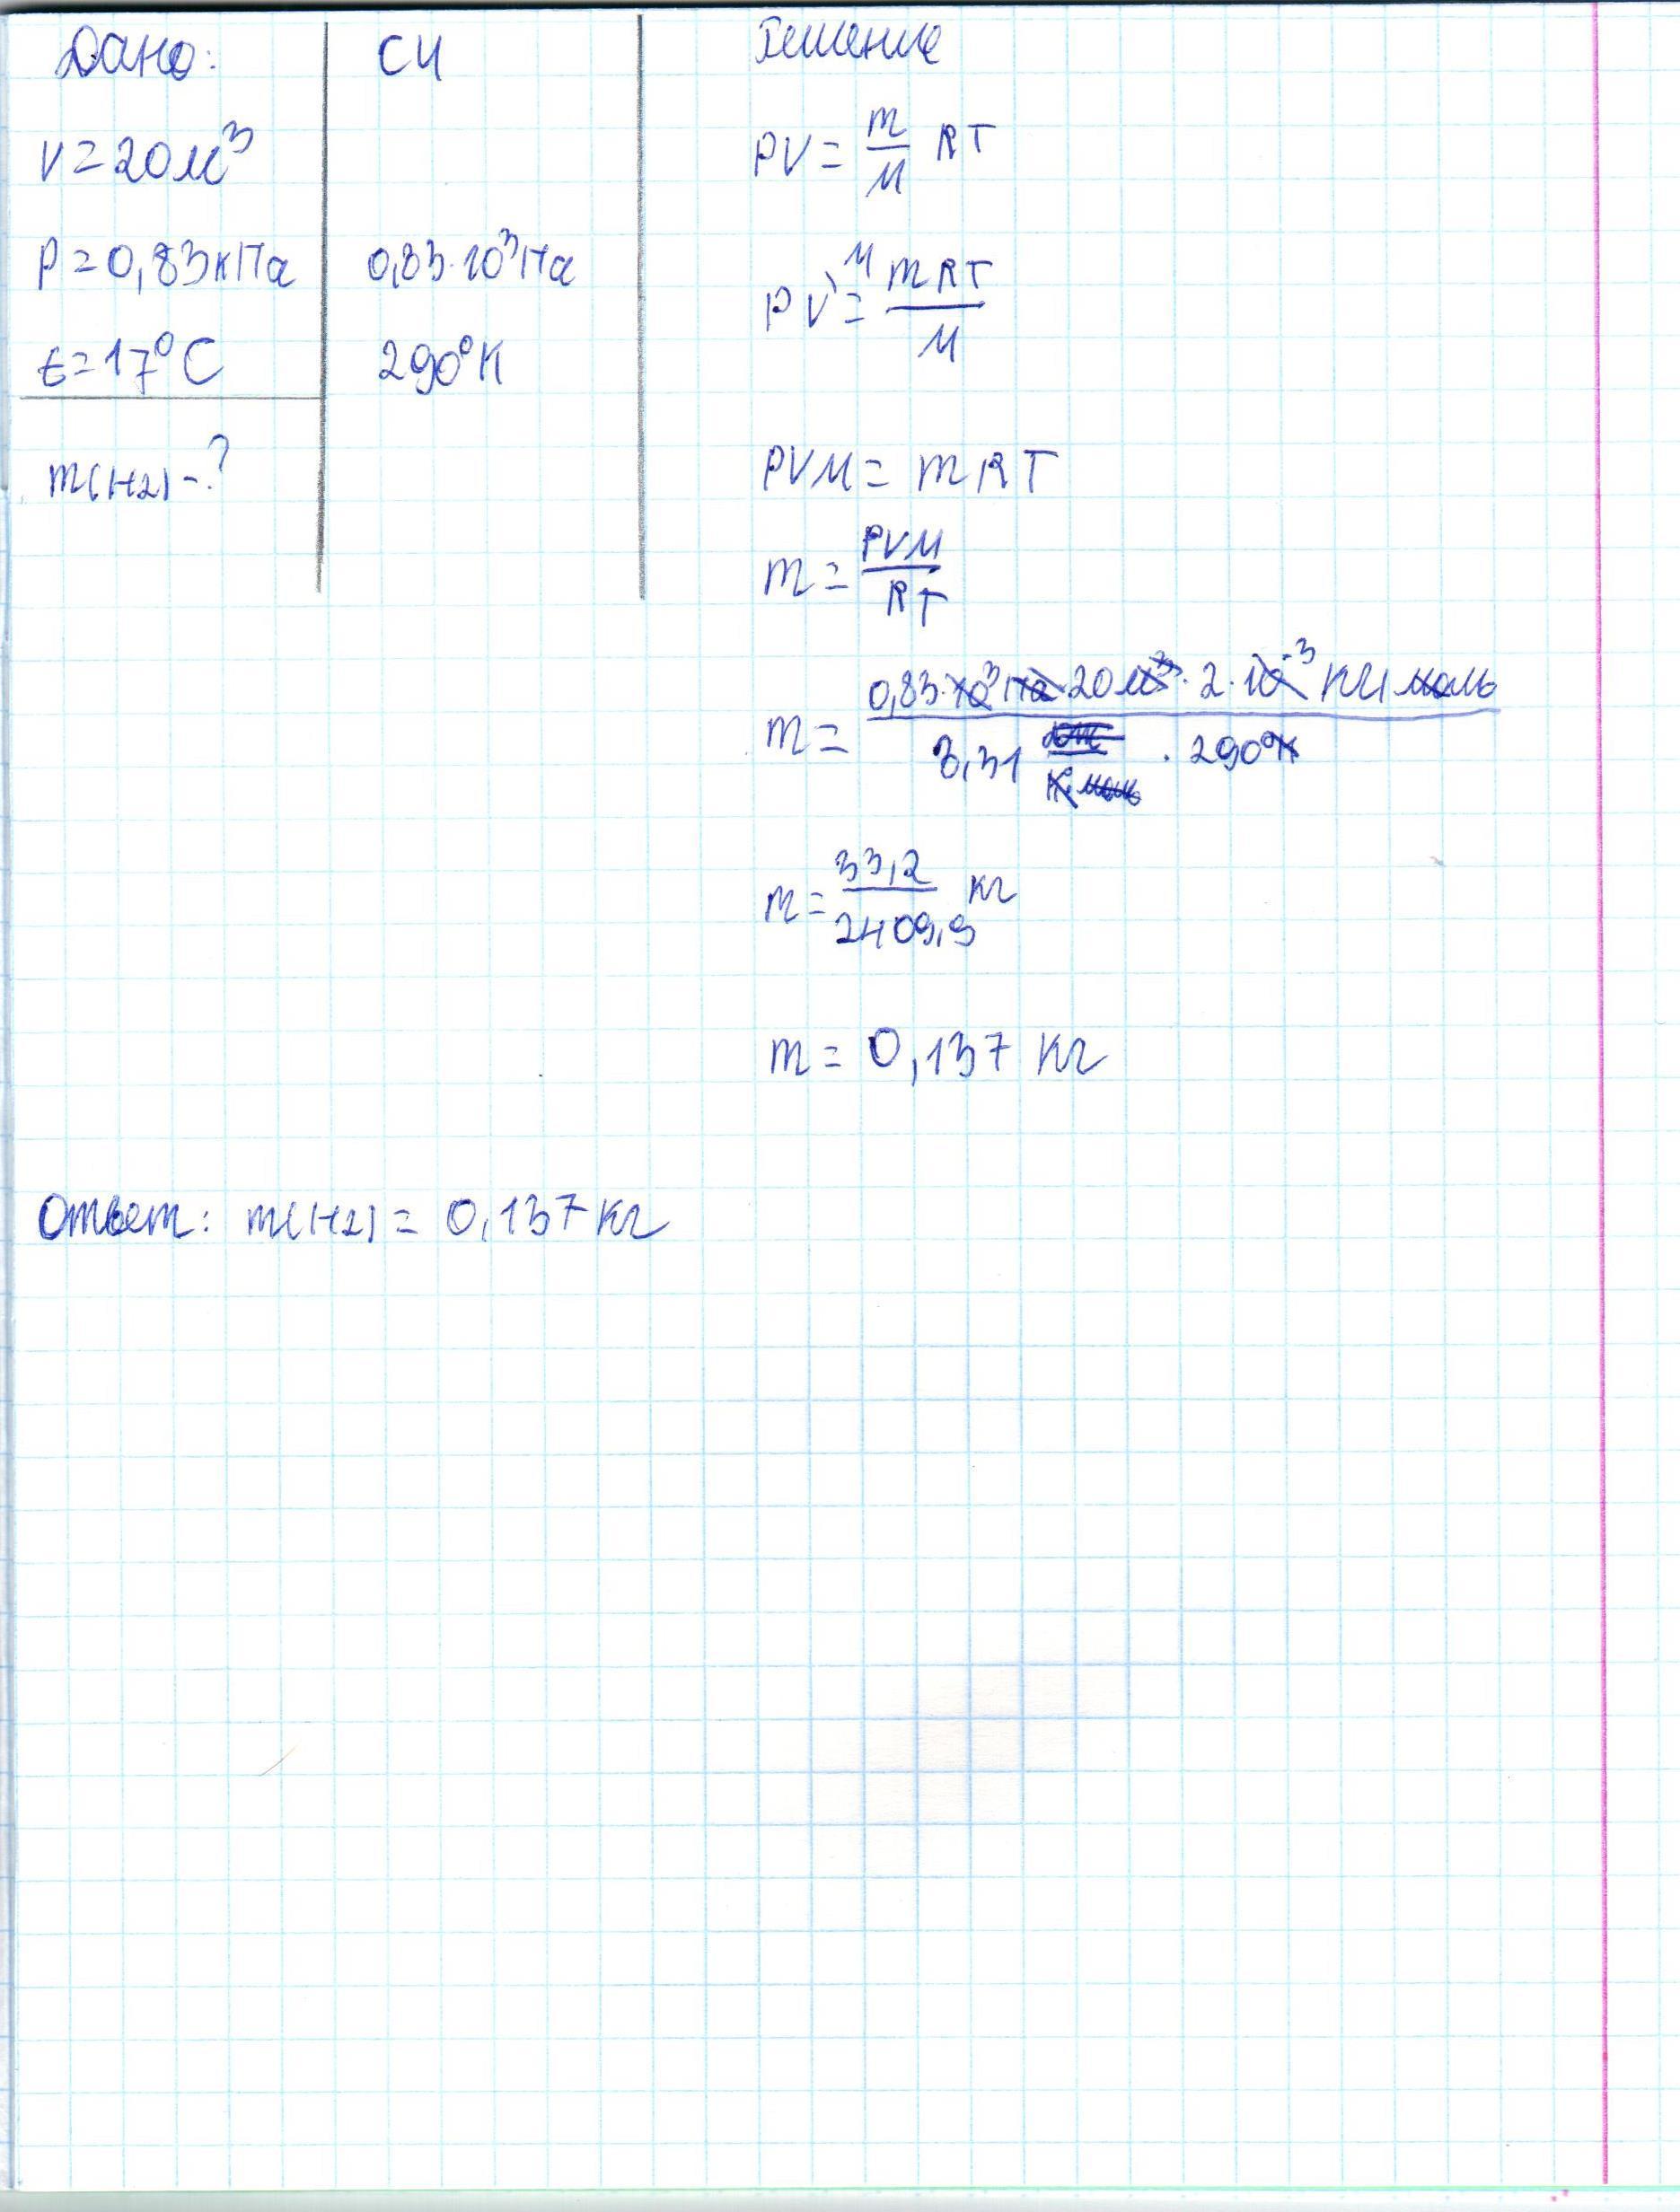 Дано:
V = 20 м³
P = 0,83 кПа
t = 17°C
m(H2) - ?
СИ
0,83·10³ Па
290°К
Решение
PV = m/M RT
PV = M mRT/M
PVM = mRT
m = PVM/RT
m = 0,83·10³ Па·20 м³·2·10⁻³ кг/моль
8,31 Дж/К·моль · 290°К
m = 33,2/2409,9 кг
m = 0,137 кг
Ответ: m(H2) = 0,137 кг